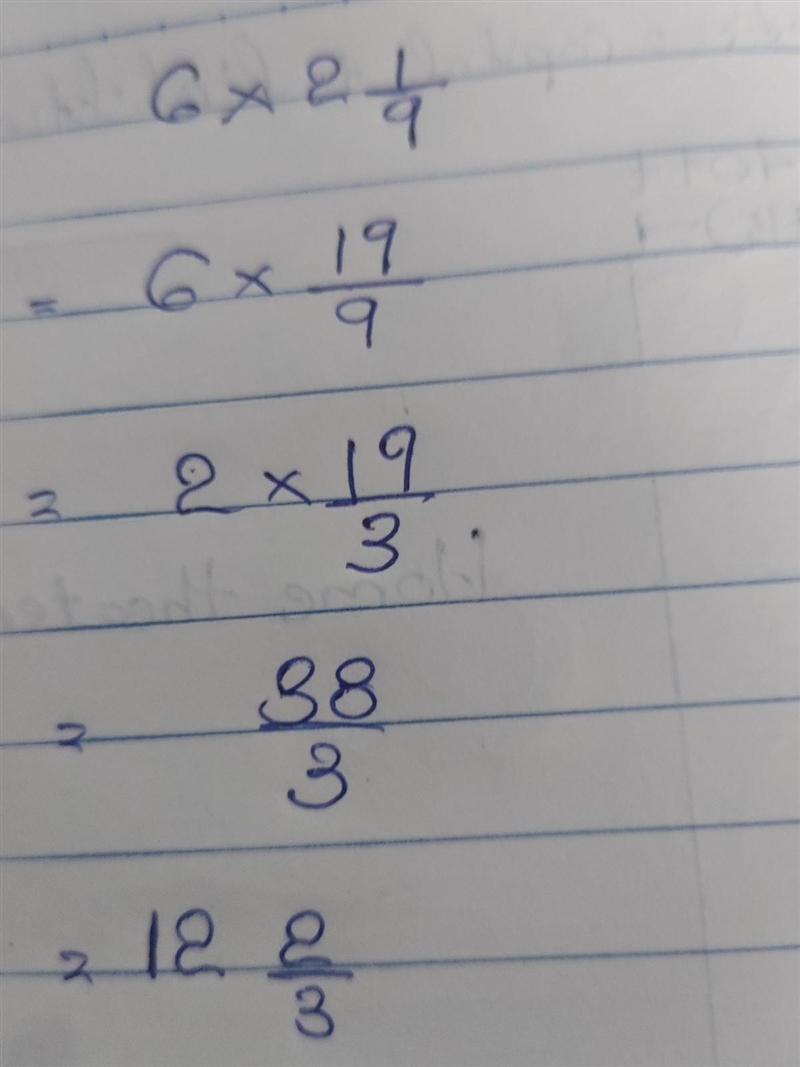 6 × 2 1/9
= 6 × 19/9
= 2 × 19/3
= 38/3
= 12 2/3